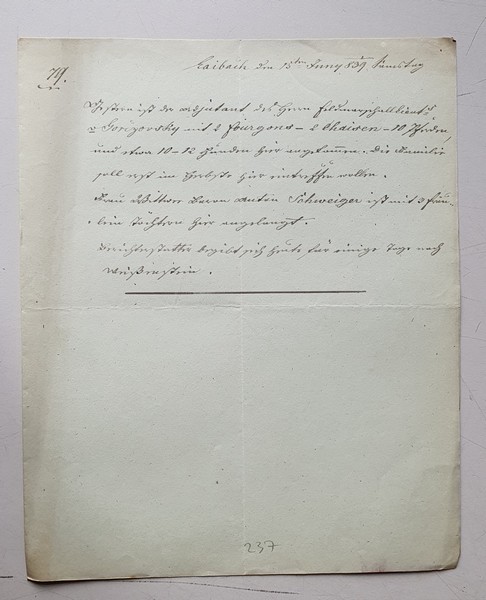 79.
Laibach den 15ten Juny 839 Samstag
Gestern ist der Adjutant des Herrn Feldmarschallieut.
v Gorizovsky mit 2 fourgons – 2 Chaisen – 10 Pferden,
und etwa 10–12 Hunden hier angekommen. Die Familie
soll erst im Herbste hier eintreffen wollen.
Frau Wittwe Baron Anton Schweiger ist mit 3 Fräu-
lein Töchtern hier angelangt.
Berichterstatter begibt sich heute für einige Tage nach
Weißenstein.
237